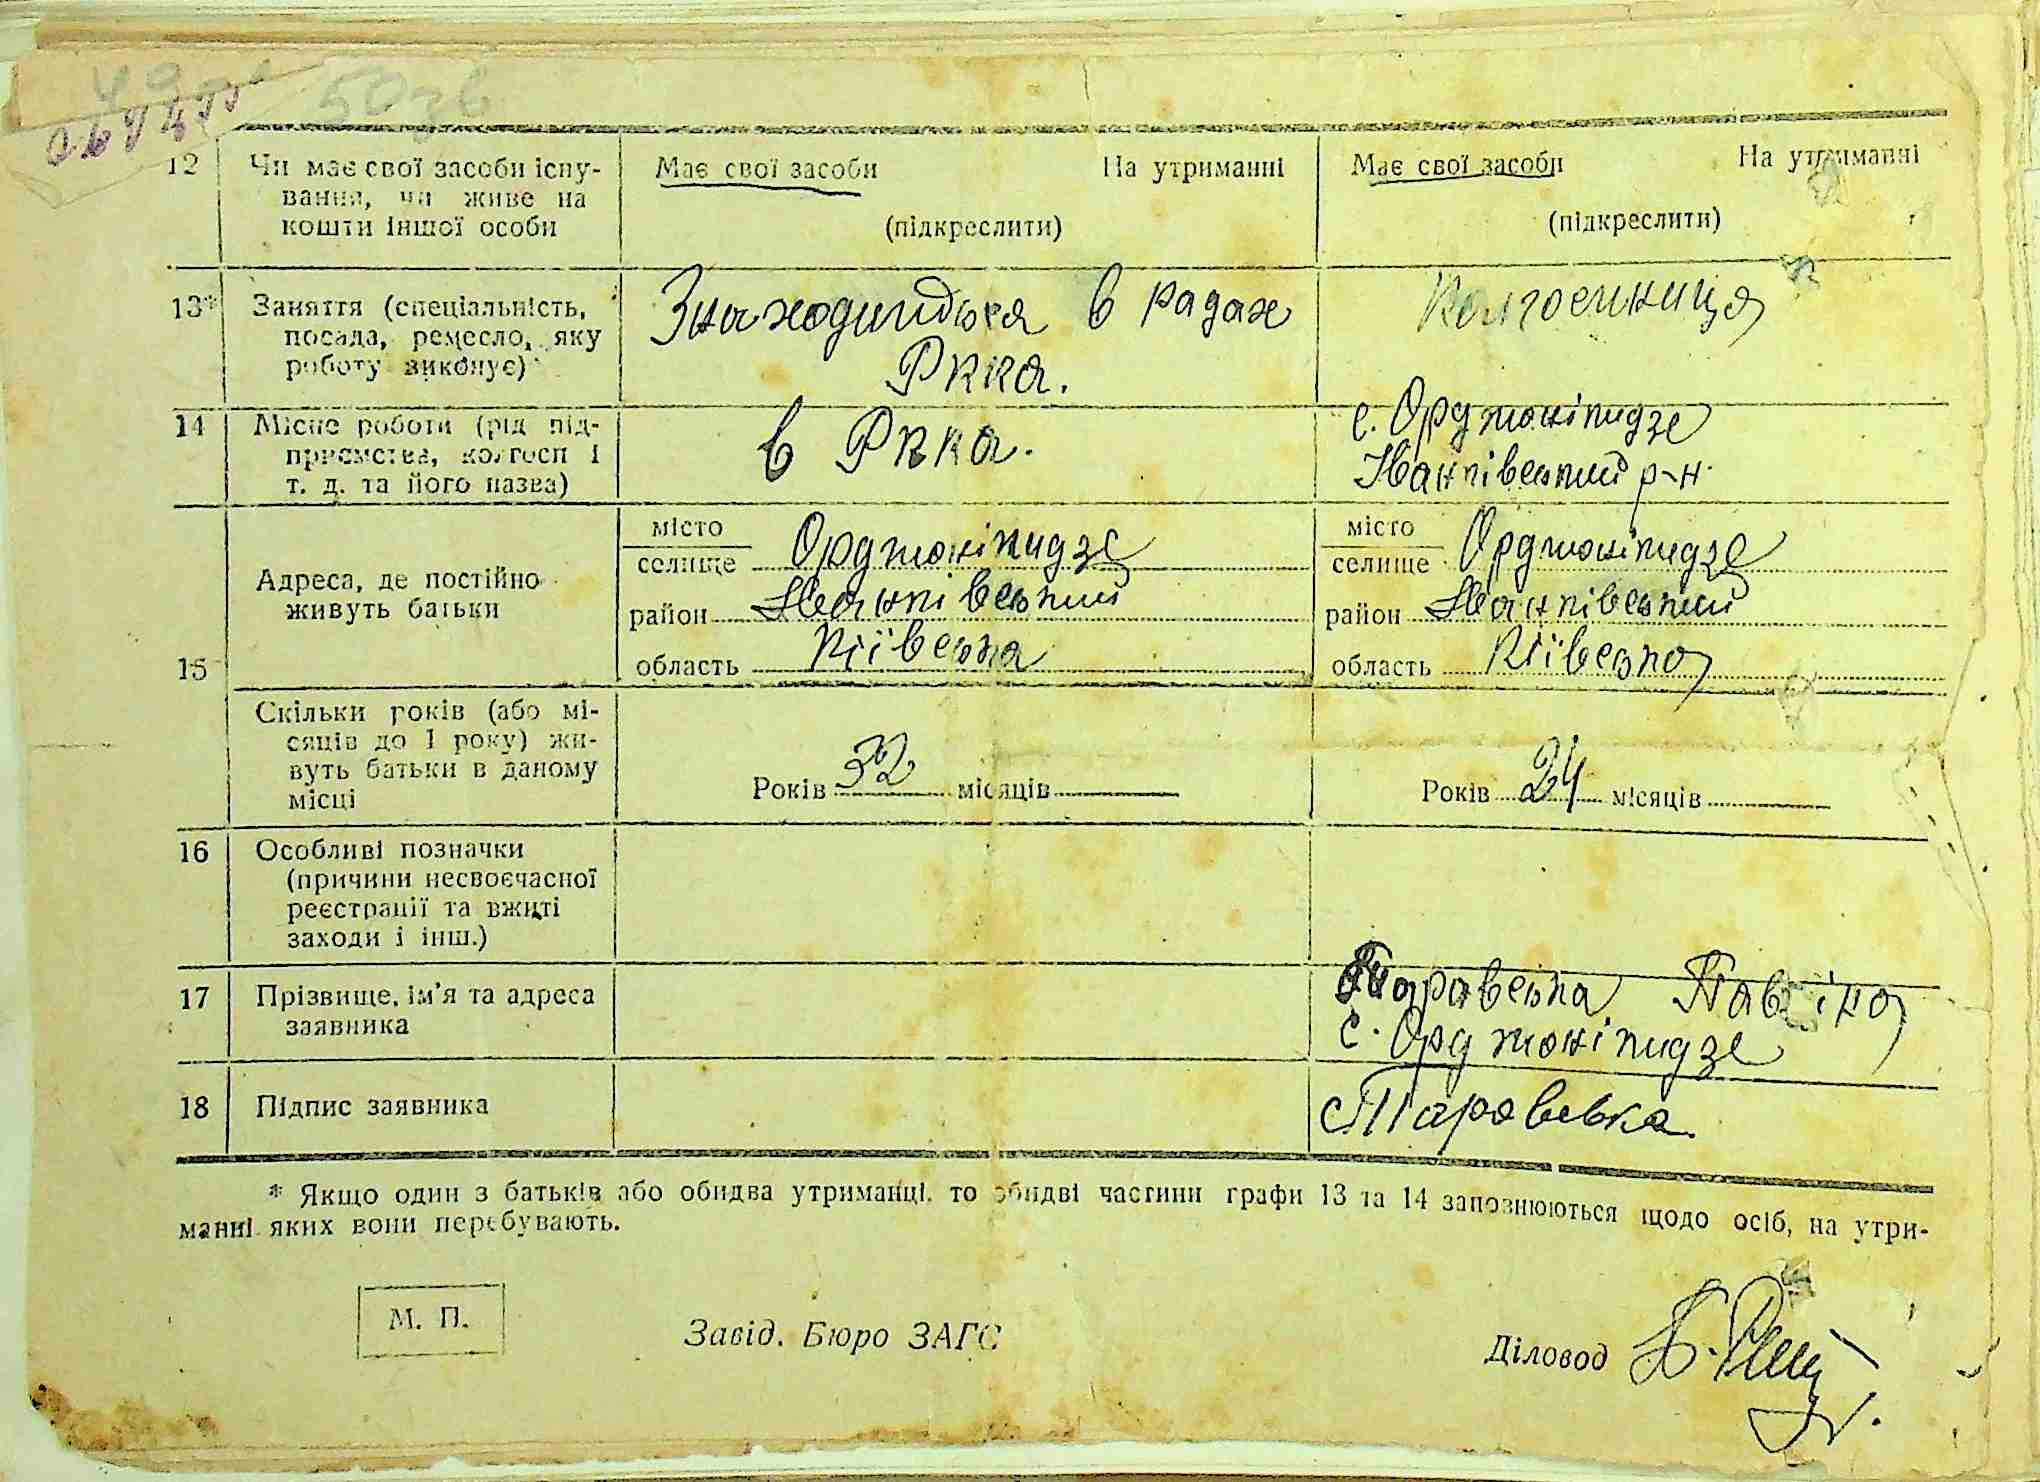 50зв
12 Чи має свої засоби існу-
вання, чи живе на
кошти іншої особи
Має свої засоби На утриманні
(підкреслити)
Має свої засоби На утриманні
(підкреслити)
13* Заняття (спеціальність,
посада, ремесло, яку
роботу виконує)
Знаходидься в радах
РККА.
Колгоспниця
14 Місце роботи (рід під-
приємства, колгосп і
т. д. та його назва)
в РККА.
с. Орджонікидзе
р-н.
15 Адреса, де постійно
живуть батьки
місто
селище Орджонікидзе
район
область Київська
місто
селище Орджонікидзе
район
область Київська
Скільки років (або мі-
сяців до 1 року) жи-
вуть батьки в даному
місці
Років 32 місяців
Років 24 місяців
16 Особливі позначки
(причини несвоєчасної
реєстрації та вжиті
заходи і інш.)
17 Прізвище, ім'я та адреса
заявника
Таравська Павліна
с. Орджонікидзе
18 Підпис заявника
Таравська
* Якщо один з батьків або обидва утриманці, то обидві частини графи 13 та 14 заповнюються щодо осіб, на утри-
манні яких вони перебувають.
М. П.
Завід. Бюро ЗАГС
Діловод